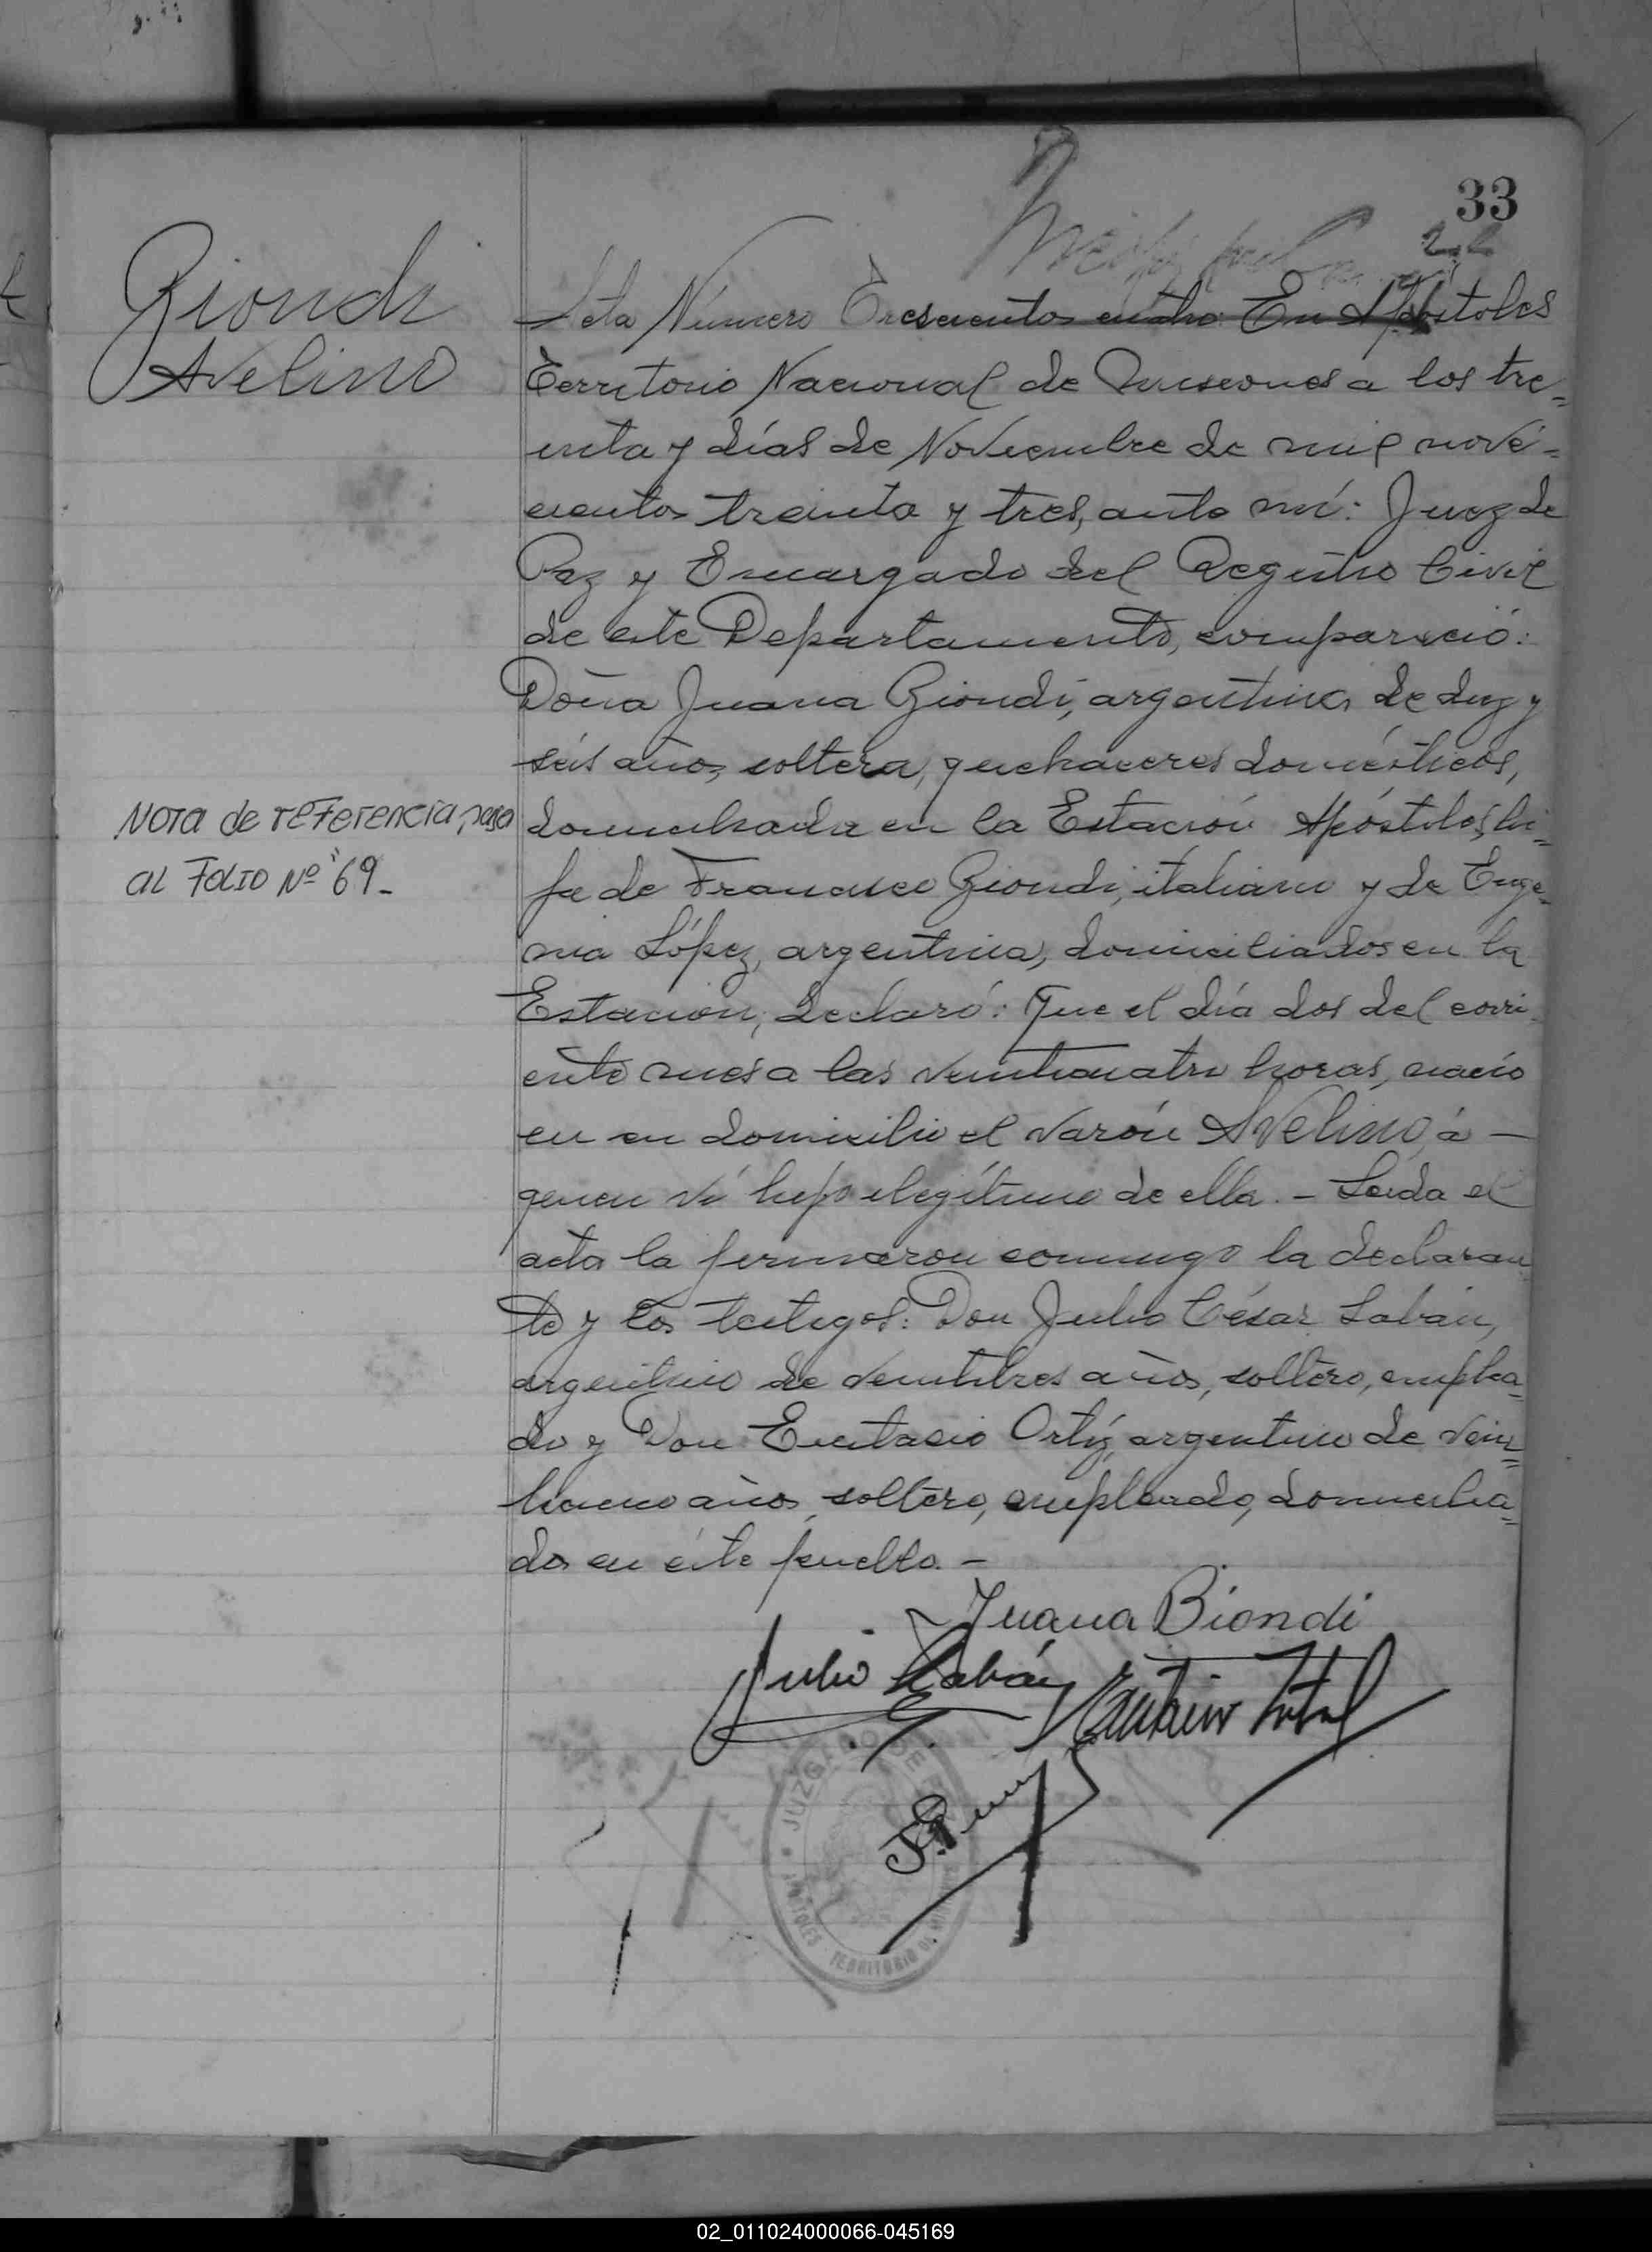 33
Biondi
Avelino
Acta Número Trescientos cuatro: En Apóstoles
Territorio Nacional de Misiones a los tre=
inta y días de Noviembre de mil nove=
cientos treinta y tres, ante mí: Juez de
Paz y Encargado del Registro Civil
de este Departamento, compareció:
Doña Juana Biondi, argentina de diez y
seis años, soltera, quehaceres domésticos,
domiciliada en la Estación Apóstoles, hi=
ja de Francisco Biondi, italiano y de Euge=
nia López, argentina, domiciliados en la
Estación, declaró: Que el día dos del corri
ente mes a las veinticuatro horas, nació
en su domicilio el varón Avelino, á —
quien ví hijo ilegítimo de ella. — Leida el
acta la firmaron conmigo la declaran
te y los testigos: Don Julio César Labán,
argentino de veintitres años, soltero, emplea=
do y Don Eustacio Ortíz, argentino de vein=
ticinco años, soltero, empleado, domicilia=
dos en éste pueblo. —
Nota de referencia, pasa
al Folio Nº 69_
Juana Biondi
Julio Labán
JUZGADO DE
APOSTOLES - TERRITORIO DE
02_011024000066-045169